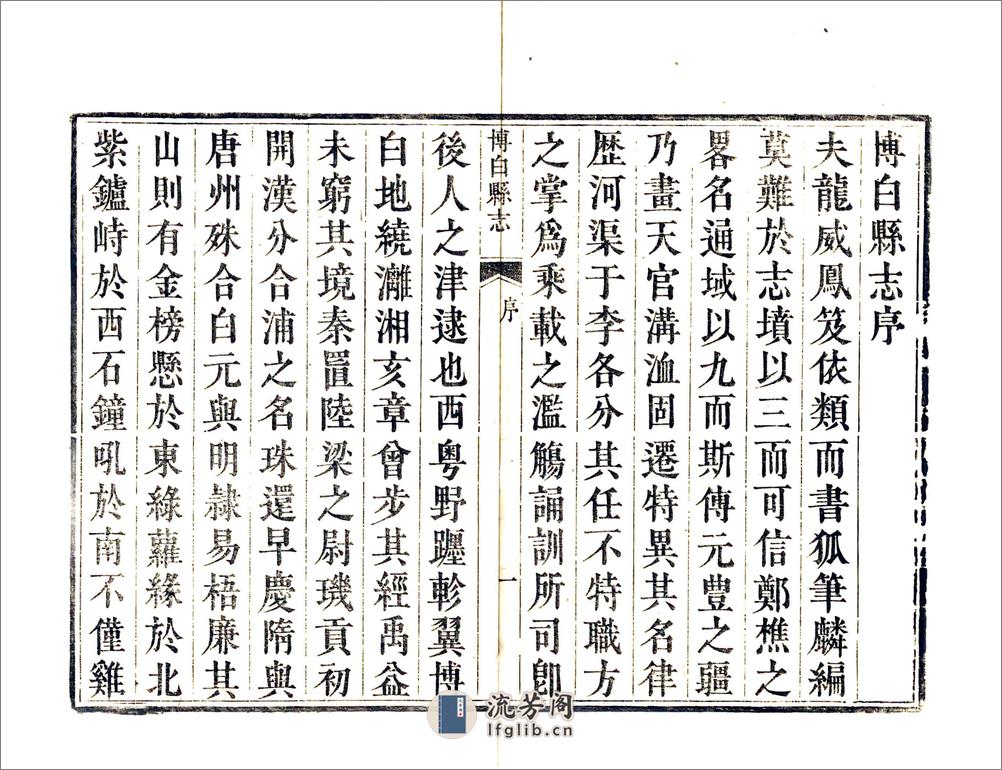 博白縣志序
夫龍威鳳笈依類而書狐筆麟編
莫難於志墳以三而可信鄭樵之
畧名通域以九而斯傳元豐之疆
乃畫天官溝洫固遷特異其名律
歷河渠于李各分其任不特職方
之掌爲乘載之濫觴誦訓所司卽
博白縣志
序
一
後人之津逮也西粵野躔軫翼博
白地繞灕湘亥章曾步其經禹益
未窮其境秦置陸梁之尉璣貢初
開漢分合浦之名珠還早慶隋與
唐州殊合白元與明隸易梧廉其
山則有金榜懸於東綠蘿緣於北
紫鑪峙於西石鐘吼於南不僅雞
流芳阁
lfglib.cn